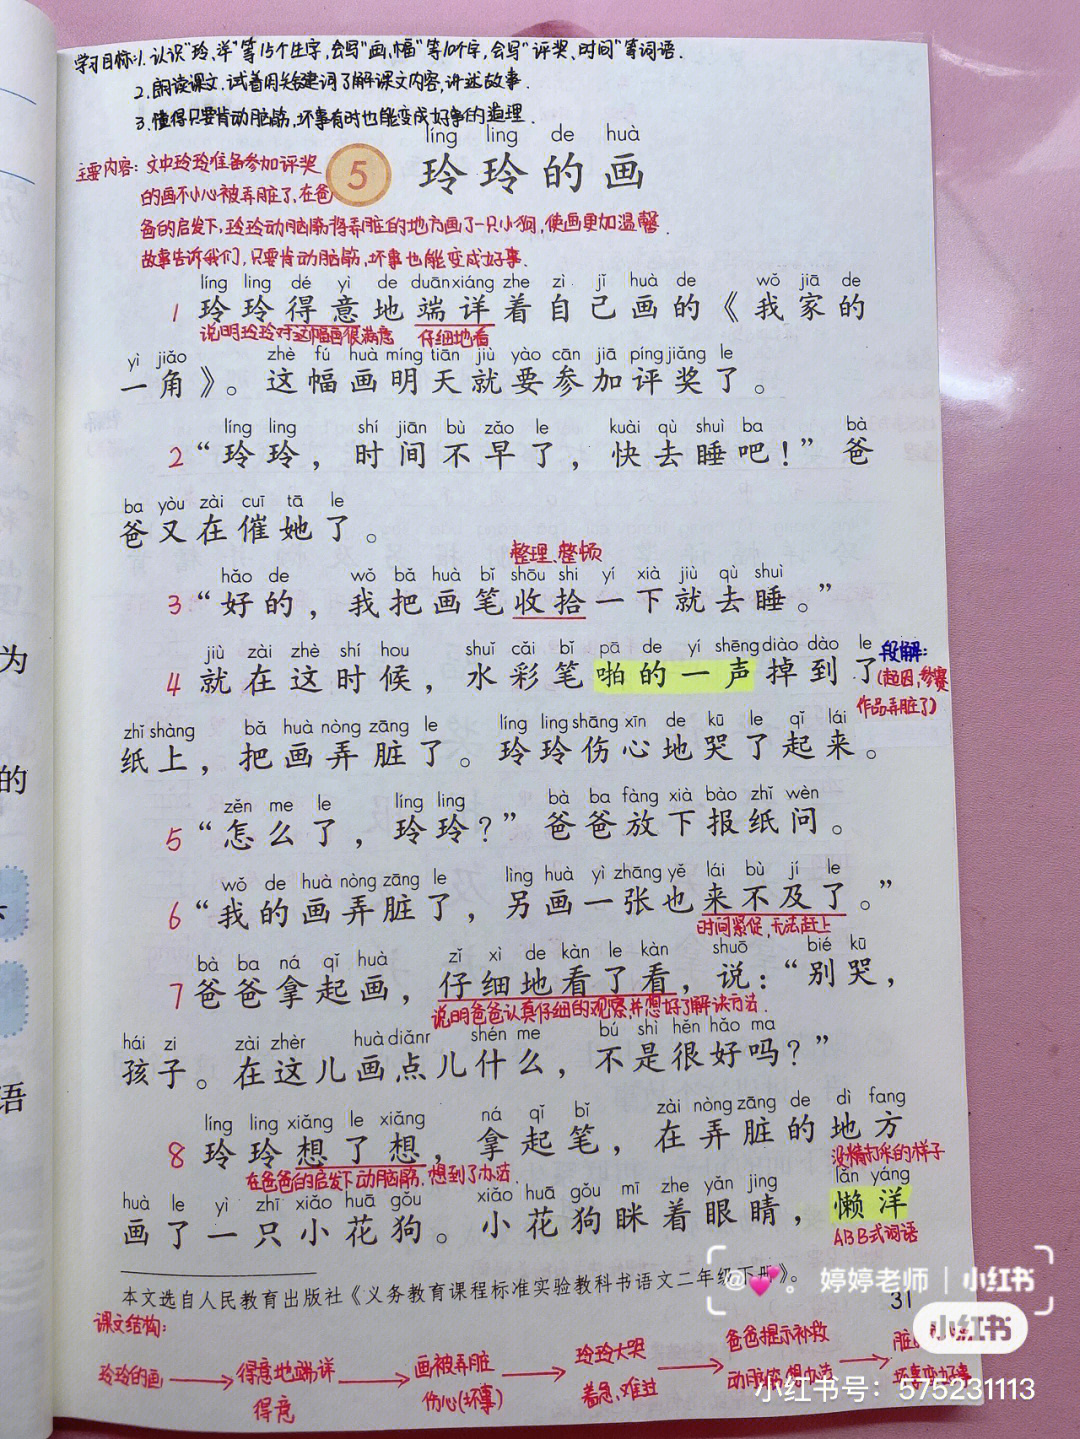 学习目标:1.认识"玲、详"等15个生字,会写"画、幅"等10个字,会写"评奖、时间"等词语.
2.朗读课文.试着用关键词了解课文内容,讲述故事.
3.懂得只要肯动脑筋,坏事有时也能变成好事的道理.
líng ling de huà
5 玲玲的画
主要内容:文中玲玲准备参加评奖
的画不小心被弄脏了,在爸
爸的启发下,玲玲动脑筋将弄脏的地方画了一只小狗,使画更加温馨.
故事告诉我们,只要肯动脑筋,坏事也能变成好事.
líng ling dé yì de duān xiáng zhe zì jǐ huà de wǒ jiā de
1 玲玲得意地端详着自己画的《我家的
说明玲玲对这幅画很满意 仔细地看
yì jiǎo zhè fú huà míng tiān jiù yào cān jiā píng jiǎng le
一角》。这幅画明天就要参加评奖了。
líng ling shí jiān bù zǎo le kuài qù shuì ba bà
2 “玲玲,时间不早了,快去睡吧!”爸
ba yòu zài cuī tā le
爸又在催她了。
整理、整顿
hǎo de wǒ bǎ huà bǐ shōu shi yí xià jiù qù shuì
3 “好的,我把画笔收拾一下就去睡。”
jiù zài zhè shí hou shuǐ cǎi bǐ pā de yí shēng diào dào le
4 就在这时候,水彩笔啪的一声掉到了
段解:
(起因,参赛
作品弄脏了)
zhǐ shàng bǎ huà nòng zāng le líng ling shāng xīn de kū le qǐ lái
纸上,把画弄脏了。玲玲伤心地哭了起来。
zěn me le líng ling bà ba fàng xià bào zhǐ wèn
5 “怎么了,玲玲?”爸爸放下报纸问。
wǒ de huà nòng zāng le lìng huà yì zhāng yě lái bù jí le
6 “我的画弄脏了,另画一张也来不及了。”
时间紧促,无法赶上
bà ba ná qǐ huà zǐ xì de kàn le kàn shuō bié kū
7 爸爸拿起画,仔细地看了看,说:“别哭,
说明爸爸认真仔细的观察,并想好了解决方法.
hái zi zài zhèr huà diǎnr shén me bú shì hěn hǎo ma
孩子。在这儿画点儿什么,不是很好吗?”
líng ling xiǎng le xiǎng ná qǐ bǐ zài nòng zāng de dì fang
8 玲玲想了想,拿起笔,在弄脏的地方
在爸爸的启发下动脑筋,想到了办法.
没精打采的样子
huà le yì zhī xiǎo huā gǒu xiǎo huā gǒu mī zhe yǎn jing lǎn yáng
画了一只小花狗。小花狗眯着眼睛,懒洋
ABB式词语
本文选自人民教育出版社《义务教育课程标准实验教科书语文二年级下册》。
31
课文结构:
玲玲的画 → 得意地端详 → 画被弄脏 → 玲玲大哭 → 爸爸提示补救 →
得意 伤心(坏事) 着急、难过 坏事变好事
@💕。婷婷老师 小红书
小红书
小红书号:575231113
为
的
语